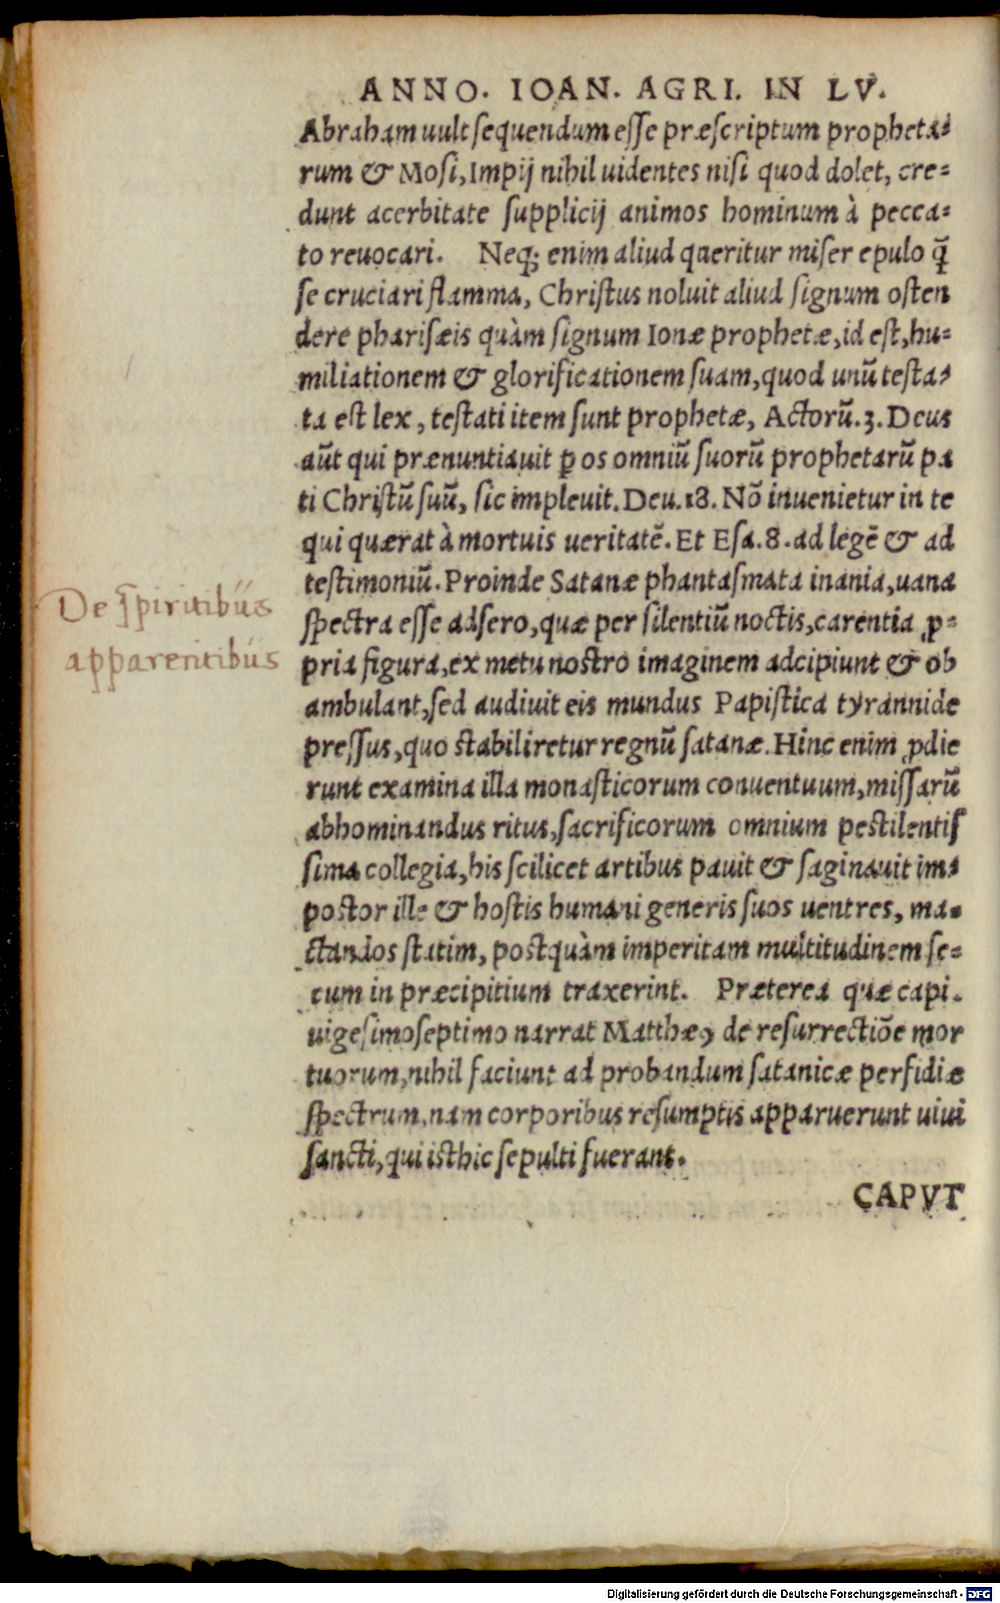 ANNO. IOAN. AGRI. IN LV.
Abraham uult sequendum esse præscriptum propheta-
rum & Mosi, Impij nihil uidentes nisi quod dolet, cre-
dunt acerbitate supplicij animos hominum à pecca-
to reuocari. Neqꝫ enim aliud queritur miser epulo q̃
se cruciari flamma, Christus noluit aliud signum osten
dere pharisæis quàm signum Ionæ prophetæ, id est, hu-
miliationem & glorificationem suam, quod unũ testa-
ta est lex, testati item sunt prophetæ, Actorũ.3. Deus
aũt qui prænuntiauit ꝑ os omniũ suorũ prophetarũ pa
ti Christũ suũ, sic impleuit. Deu.18. Nõ inuenietur in te
qui quærat à mortuis ueritatẽ. Et Esa.8. ad legẽ & ad
testimoniũ. Proinde Satanæ phantasmata inania, uana
spectra esse adsero, quæ per silentiũ noctis, carentia ꝓ-
pria figura, ex metu nostro imaginem adcipiunt & ob
ambulant, sed audiuit eis mundus Papistica tyrannide
pressus, quo stabiliretur regnũ satanæ. Hinc enim ꝓdie
runt examina illa monasticorum conuentuum, missarũ
abhominandus ritus, sacrificorum omnium pestilentis
sima collegia, his scilicet artibus pauit & saginauit im-
postor ille & hostis humani generis suos uentres, ma-
ctandos statim, postquàm imperitam multitudinem se-
cum in præcipitium traxerint. Præterea quæ capi.
uigesimoseptimo narrat Matthæꝰ de resurrectiõe mor
tuorum, nihil faciunt ad probandum satanicæ perfidiæ
spectrum, nam corporibus resumptis apparuerunt uiui
sancti, qui isthic sepulti fuerant.
CAPVT
De spiritibus
apparentibus
Digitalisierung gefördert durch die Deutsche Forschungsgemeinschaft - DFG